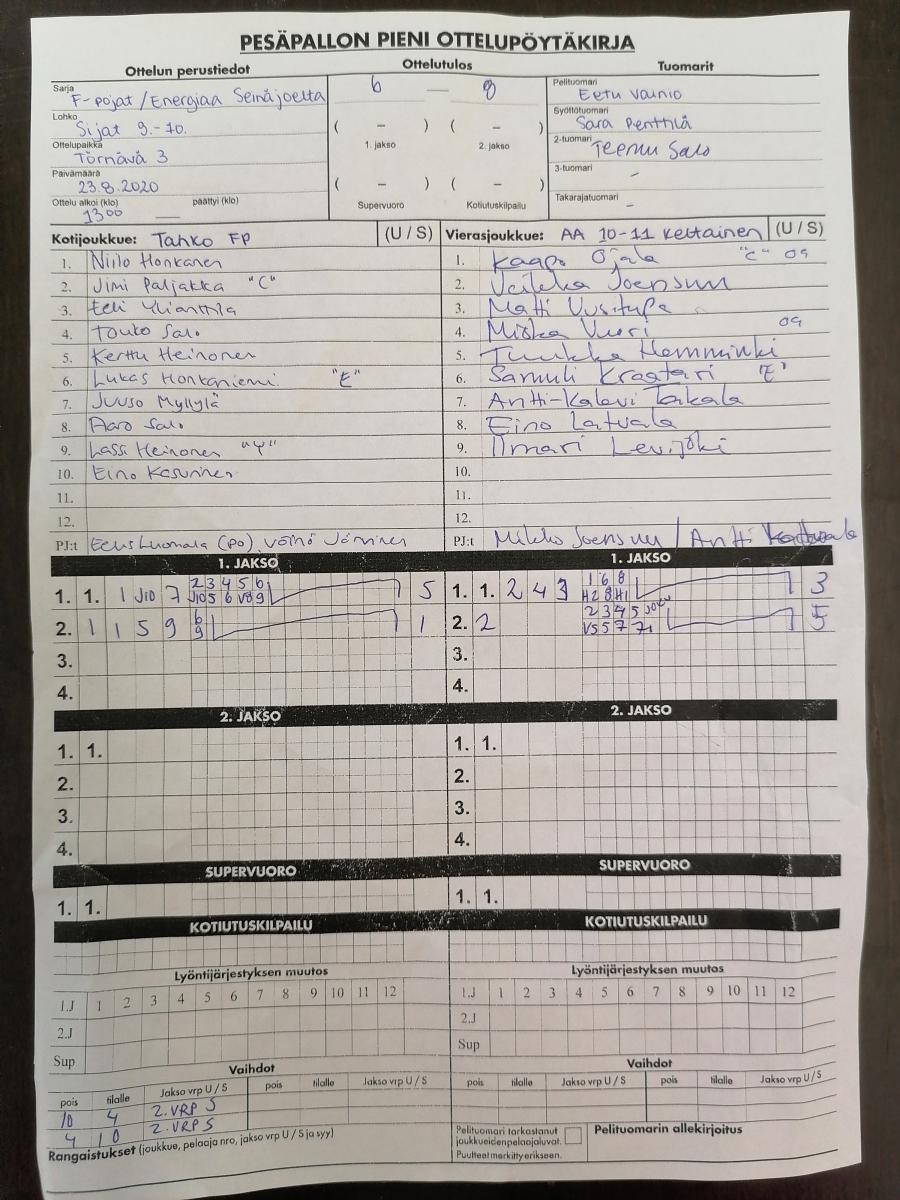 PESÄPALLON PIENI OTTELUPÖYTÄKIRJA
Ottelun perustiedot
Sarja F-pojat/Energiaa Seinäjoelta
Lohko Sijat 9.-10.
Ottelupaikka Törnävä 3
Päivämäärä 23.8.2020
Ottelu alkoi (klo) 1300 päättyi (klo)
Ottelutulos
6 — 8
( – ) ( – )
1. jakso 2. jakso
( – ) ( – )
Supervuoro Kotiutuskilpailu
Tuomarit
Pelituomari Eetu Vainio
Syöttötuomari Sara Penttilä
2-tuomari Teemu Salo
3-tuomari -
Takarajatuomari -
Kotijoukkue: Tahko FP (U / S)
1. Niilo Honkanen
2. Jimi Paljakka "C"
3. Eeli Ylianttila
4. Touko Salo
5. Kerttu Heinonen
6. Lukas Honkaniemi "E"
7. Juuso Myllylä
8. Aaro Salo
9. Lassi Heinonen "Y"
10. Eino Kasurinen
11.
12.
PJ:t Eelis Luomala (po), Väinö Järvinen
Vierasjoukkue: AA 10-11 keltainen (U / S)
1. Kaapo Ojala "C" 09
2. Veikka Joensuu
3. Matti Uusitupa
4. Miska Vuori 09
5. Tuukka Hemminki
6. Samuli Kraatari "E"
7. Antti-Kalevi Takala
8. Eino Latvala
9. Ilmari Levijoki
10.
11.
12.
PJ:t Mikko Joensuu / Antti
1. JAKSO
1. 1. 1 J10 7 2 3 4 5 6 5
J10 5 6 V8 9
2. 1 1 5 9 6 1
9
3.
4.
1. JAKSO
1. 1. 2 4 3 1 6 8 3
H2 8 H1
2. 2 2 3 4 5 5
V5 5 7 7
3.
4.
2. JAKSO
1. 1.
2.
3.
4.
2. JAKSO
1. 1.
2.
3.
4.
SUPERVUORO
1. 1.
SUPERVUORO
1. 1.
KOTIUTUSKILPAILU
KOTIUTUSKILPAILU
Lyöntijärjestyksen muutos
1.J 1 2 3 4 5 6 7 8 9 10 11 12
2.J
Sup
Lyöntijärjestyksen muutos
1.J 1 2 3 4 5 6 7 8 9 10 11 12
2.J
Sup
Vaihdot
pois tilalle Jakso vrp U / S pois tilalle Jakso vrp U / S
10 4 2. VRP S
4 10 2. VRP S
Vaihdot
pois tilalle Jakso vrp U / S pois tilalle Jakso vrp U / S
Rangaistukset (joukkue, pelaaja nro, jakso vrp U / S ja syy)
Pelituomari tarkastanut
joukkueiden pelaajaluvat.
Puutteet merkitty erikseen.
Pelituomarin allekirjoitus